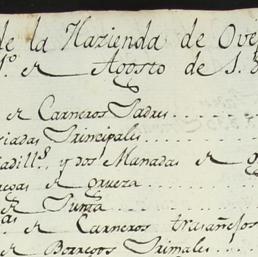 de la Hazienda de Ove
1.º de Agosto de 1.8
de Carneros Padres
riadas Principales
adill.s y dos Manadas de O
regas de grueza
de Punta
de Carneros tresañejos
de Borregos Primales